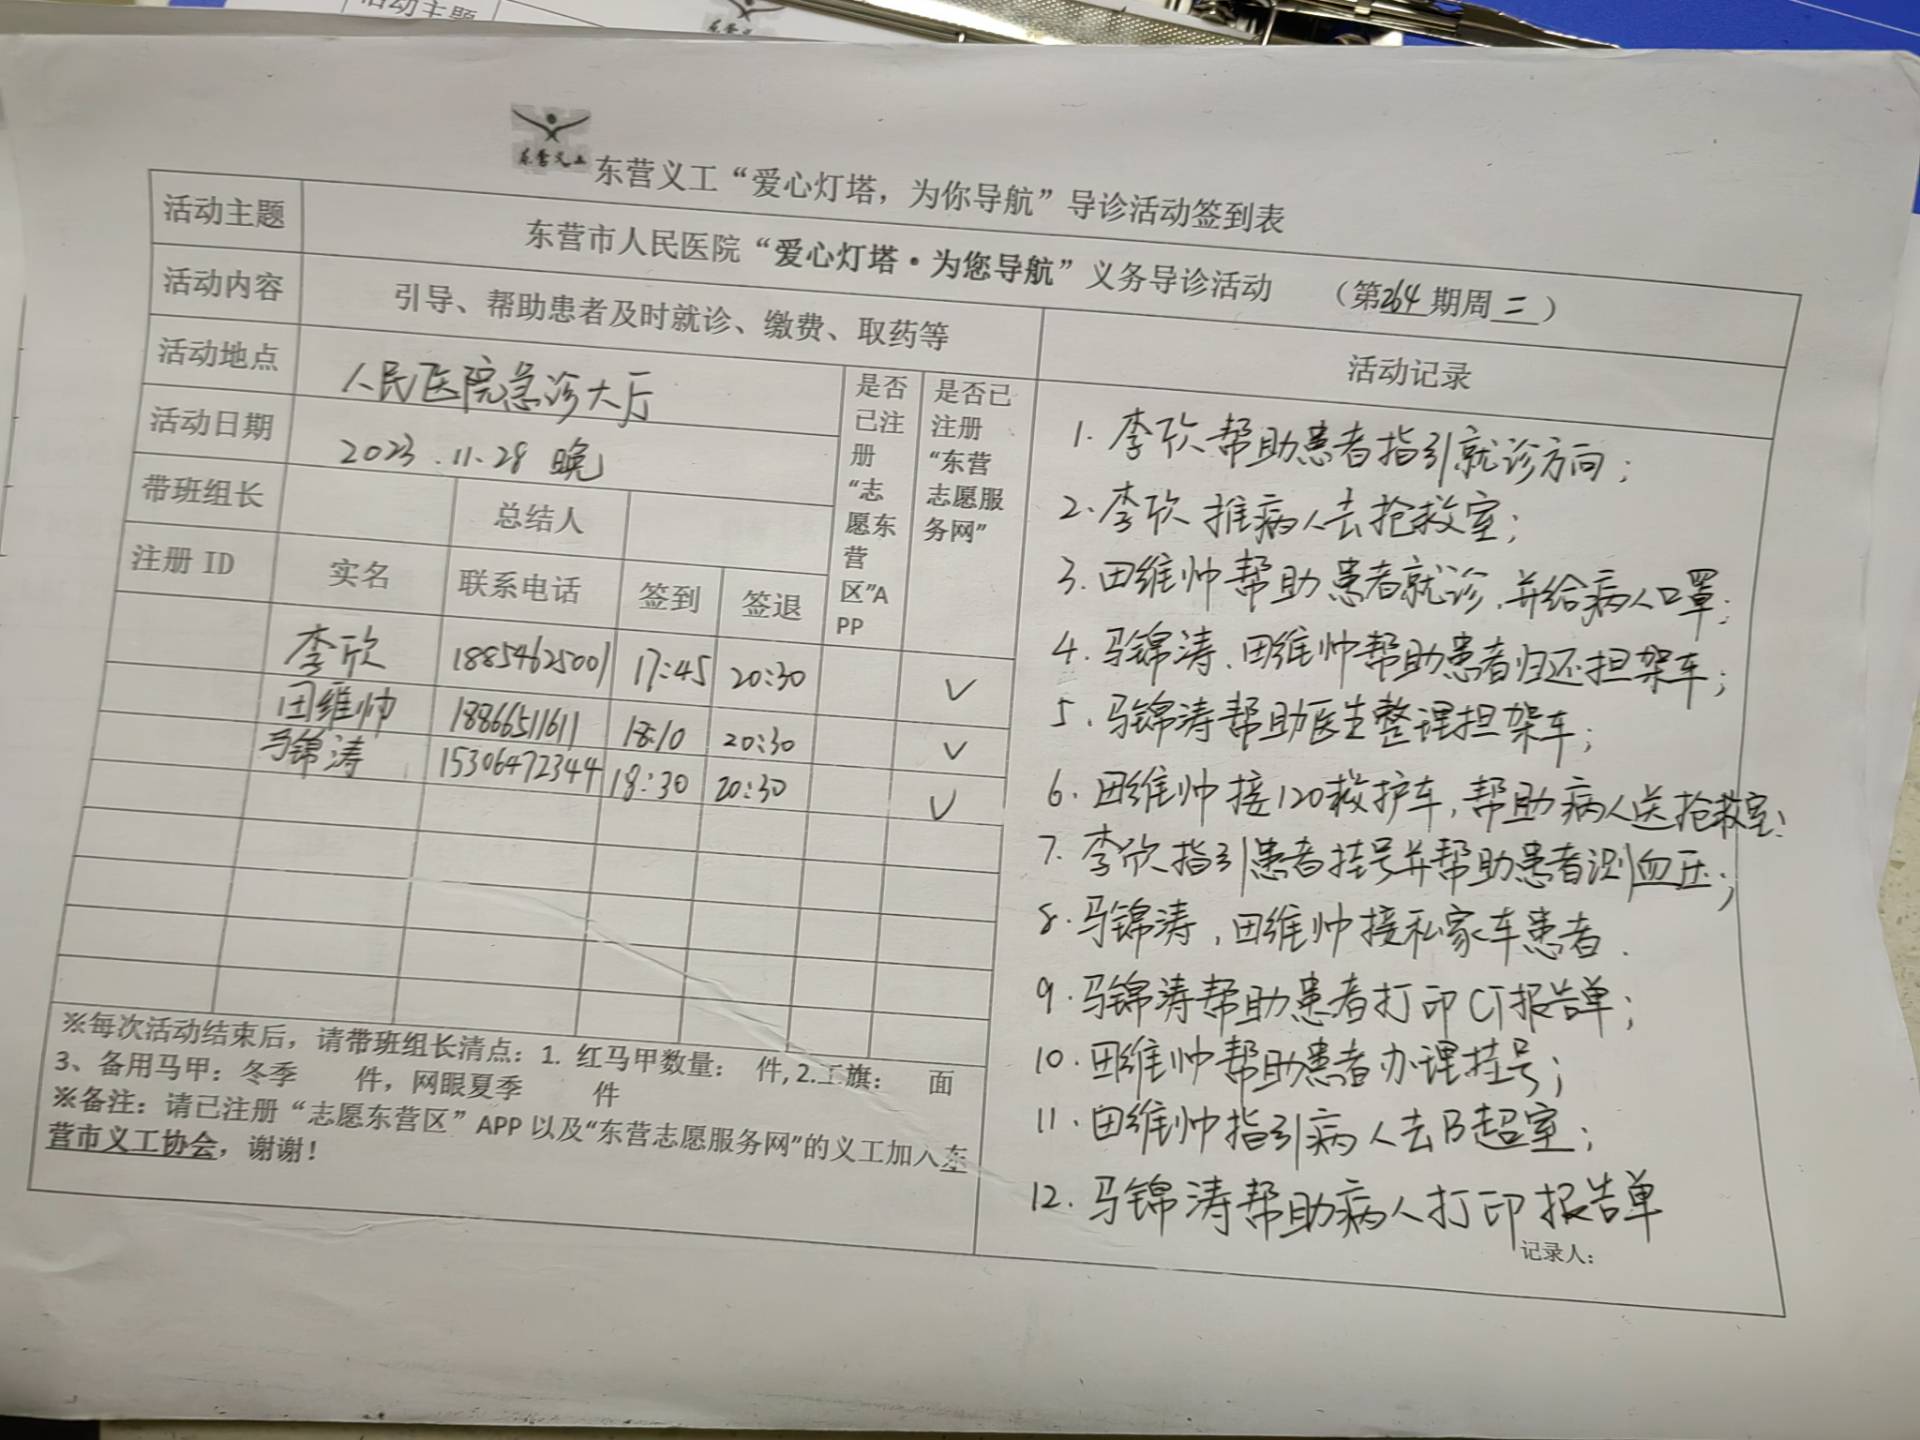 活动主题
东营义工
东营义工“爱心灯塔，为你导航”导诊活动签到表
活动主题 东营市人民医院“爱心灯塔·为您导航”义务导诊活动 （第264期周二）
活动内容 引导、帮助患者及时就诊、缴费、取药等
活动地点 人民医院急诊大厅
活动日期 2023.11.28 晚
带班组长 总结人
注册 ID 实名 联系电话 签到 签退
是否
已注
册
“志
愿东
营
区”A
PP
是否已
注册
“东营
志愿服
务网”
李欣 18854625001 17:45 20:30 √
田维帅 18866511611 18:10 20:30 √
马锦涛 15306472344 18:30 20:30 √
※每次活动结束后，请带班组长清点：1. 红马甲数量： 件, 2.工旗： 面
3、备用马甲：冬季 件，网眼夏季 件
※备注：请已注册“志愿东营区”APP 以及“东营志愿服务网”的义工加入东
营市义工协会，谢谢！
活动记录
1. 李欣帮助患者指引就诊方向；
2. 李欣推病人去抢救室；
3. 田维帅帮助患者就诊，并给病人口罩；
4. 马锦涛、田维帅帮助患者归还担架车；
5. 马锦涛帮助医生整理担架车；
6. 田维帅接120救护车，帮助病人送抢救室；
7. 李欣指引患者挂号并帮助患者测血压；
8. 马锦涛，田维帅接私家车患者.
9. 马锦涛帮助患者打印CT报告单；
10. 田维帅帮助患者办理挂号；
11. 田维帅指引病人去B超室；
12. 马锦涛帮助病人打印报告单
记录人：